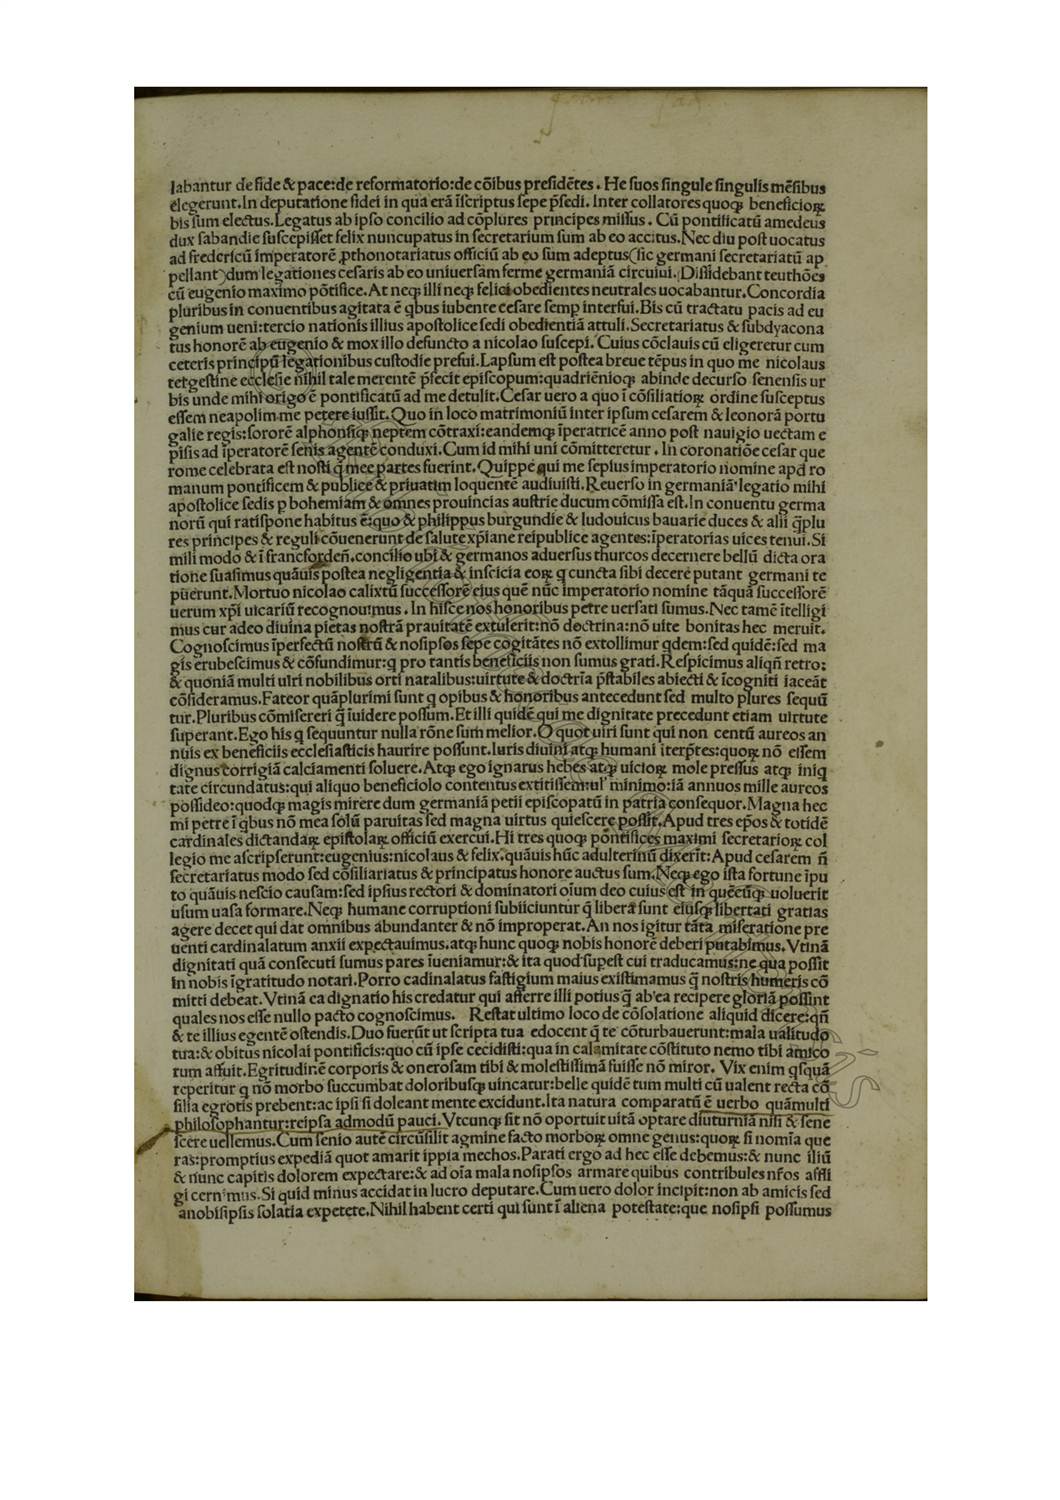 labantur de fide & pace:de reformatorio:de cōibus presidētes. He suos singule singulis mēsibus
elegerunt.In deputatione fidei in qua erā īscriptus sepe p̄sedi. Inter collatores quoqꝫ beneficioꝝ
bis sum electus.Legatus ab ipso concilio ad cōplures principes missus. Cū pontificatū amedeus
dux sabandie suscepisset felix nuncupatus in secretarium sum ab eo accitus.Nec diu post uocatus
ad fredericū imperatorē ꝓthonotariatus officiū ab eo sum adeptus(sic germani secretariatū ap
pellant)dum legationes cesaris ab eo uniuersam ferme germaniā circuiui. Dissidebant teuthōes
cū eugenio maximo pōtifice.At neqꝫ illi neqꝫ felici obedientes neutrales uocabantur.Concordia
pluribus in conuentibus agitata ē qbus iubente cesare semp̄ interfui.Bis cū tractatu pacis ad eu
genium ueni:tercio nationis illius apostolice sedi obedientiā attuli.Secretariatus & subdyacona
tus honorē ab eugenio & mox illo defuncto a nicolao suscepi. Cuius cōclauis cū eligeretur cum
ceteris principū legationibus custodie prefui.Lapsum est postea breue tēpus in quo me nicolaus
tergestine ecclesie nihil tale merentē p̄fecit episcopum:quadriēnioqꝫ abinde decurso senensis ur
bis unde mihi origo ē pontificatū ad me detulit.Cesar uero a quo ī cōsiliatioꝝ ordine susceptus
essem neapolim me petere iussit.Quo in loco matrimoniū inter ipsum cesarem & leonorā portu
galie regis:sororē alphonsiqꝫ neptem cōtraxi:eandemqꝫ īperatricē anno post nauigio uectam e
pisis ad īperatorē senis agentē conduxi.Cum id mihi uni cōmitteretur. In coronatiōe cesar que
rome celebrata est nosti q̄ mee partes fuerint.Quippe qui me sepius imperatorio nomine apd ro
manum pontificem & publice & priuatim loquentē audiuisti.Reuerso in germaniā legatio mihi
apostolice sedis p bohemiam & omnes prouincias austrie ducum cōmissa est.In conuentu germa
norū qui ratispone habitus ē:quo & philippus burgundie & ludouicus bauarie duces & alii q̄plu
res principes & reguli cōuenerunt de salute xp̄iane reipublice agentes:īperatorias uices tenui.Si
mili modo & ī francforden̄.concilio ubi & germanos aduersus thurcos decernere bellū dicta ora
tione suasimus quāuis postea negligentia & inscicia eoꝝ q cuncta sibi decere putant germani te
puerunt.Mortuo nicolao calixtū successorē eius quē nūc imperatorio nomine tāquā successorē
uerum xp̄i uicariū recognouimus. In hisce nos honoribus petre uersati sumus.Nec tamē ītelligi
mus cur adeo diuina pietas nostrā prauitatē extulerit:nō doctrina:nō uite bonitas hec meruit.
Cognoscimus īperfectū nostrū & nosipsos sepe cogitātes nō extollimur qdem:sed quidē:sed ma
gis erubescimus & cōfundimur:q pro tantis beneficiis non sumus grati.Respicimus aliqn̄ retro:
& quoniā multi uiri nobilibus orti natalibus:uirtute & doctrīa p̄stabiles abiecti & īcogniti iaceāt
cōsideramus.Fateor quāplurimi sunt q opibus & honoribus antecedunt sed multo plures sequū
tur.Pluribus cōmisereri q̄ īuidere possum.Et illi quidē qui me dignitate precedunt etiam uirtute
superant.Ego his q sequuntur nulla rōne sum melior.O quot uiri sunt qui non centū aureos an
nuis ex beneficiis ecclesiasticis haurire possunt.Iuris diuini atqꝫ humani īterp̄tes:quoꝝ nō essem
dignus corrigiā calciamenti soluere.Atqꝫ ego ignarus hebes atqꝫ uicioꝝ mole pressus atqꝫ iniq
tate circundatus:qui aliquo beneficiolo contentus extitissem:ul' minimo:iā annuos mille aureos
possideo:quodqꝫ magis mirere dum germaniā petii episcopatū in patria consequor.Magna hec
mi petre ī qbus nō mea solū paruitas sed magna uirtus quiescere possit.Apud tres ep̄os & totidē
cardinales dictandaꝝ epistolaꝝ officiū exercui.Hi tres quoqꝫ pōntifices maximi secretarioꝝ col
legio me ascripserunt:eugenius:nicolaus & felix.quāuis hūc adulterinū dixerīt:Apud cesarem n̄
secretariatus modo sed cōsiliariatus & principatus honore auctus sum.Neqꝫ ego ista fortune īpu
to quāuis nescio causam:sed ipsius rectori & dominatori oīum deo cuius est in quēcūqꝫ uoluerit
usum uasa formare.Neqꝫ humane corruptioni subiiciuntur q̄ libera sunt eiusqꝫ libertati gratias
agere decet qui dat omnibus abundanter & nō improperat.An nos igitur tāta miseratione pre
uenti cardinalatum anxii expectauimus.atqꝫ hunc quoqꝫ nobis honorē deberi putabimus.Vtinā
dignitati quā consecuti sumus pares īueniamur:& ita quod supest cui traducamus:ne qua possit
in nobis īgratitudo notari.Porro cadinalatus fastigium maius existimamus q̄ nostris humeris cō
mitti debeat.Vtinā ea dignatio his credatur qui afferre illi potius q̄ ab'ea recipere gloriā possint
quales nos esse nullo pacto cognoscimus. Restat ultimo loco de cōsolatione aliquid dicere:qn̄
& te illius egentē ostendis.Duo fuerūt ut scripta tua edocent q̄ te cōturbauerunt:mala ualitudo
tua:& obitus nicolai pontificis:quo cū ipse cecidisti:qua in calamitate cōstituto nemo tibi amico
rum affuit.Egritudinē corporis & onerosam tibi & molestissimā fuisse nō miror. Vix enim qsquā
reperitur q nō morbo succumbat doloribusqꝫ uincatur:belle quidē tum multi cū ualent recta cō
silia egrotis prebent:ac ipsi si doleant mente excidunt.Ita natura comparatū ē uerbo quāmulti
philosophantur:reipsa admodū pauci.Vtcunqꝫ sit nō oportuit uitā optare diuturniā nisi & sene
scere uellemus.Cum senio autē circūsilit agmine facto morboꝝ omne genus:quoꝝ si nomīa que
ras:promptius expediā quot amarit ippia mechos.Parati ergo ad hec esse debemus:& nunc iliū
& nunc capitis dolorem expectare:& ad oīa mala nosipsos armare quibus contribules nr̄os affli
gi cernimus.Si quid minus accidat in lucro deputare.Cum uero dolor incipit:non ab amicis sed
anobisipsis solatia expetete.Nihil habent certi qui sunt ī aliena potestate:que nosipsi possumus